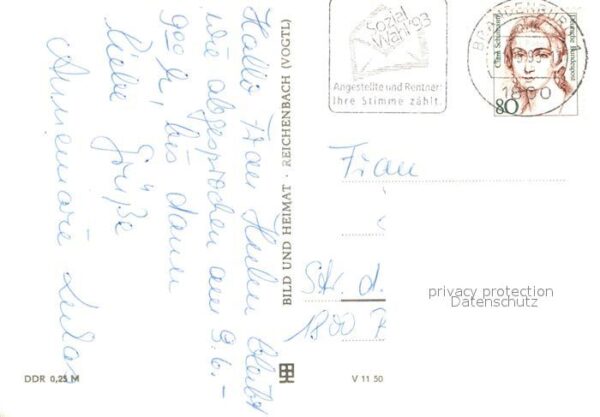 Hallo Frau Huhn bleibt
wie abgesprochen am 9.6. –
900 h, bis dann
Liebe Grüße
Annemarie
BILD UND HEIMAT · REICHENBACH (VOGTL)
DDR 0,25 M
V 11 50
Sozial
Wahl '93
Angestellte und Rentner:
Ihre Stimme zählt.
BRANDENBURG
1800
Clara Schumann
Deutsche Bundespost
80
Frau
Str. d.
1800
privacy protection
Datenschutz